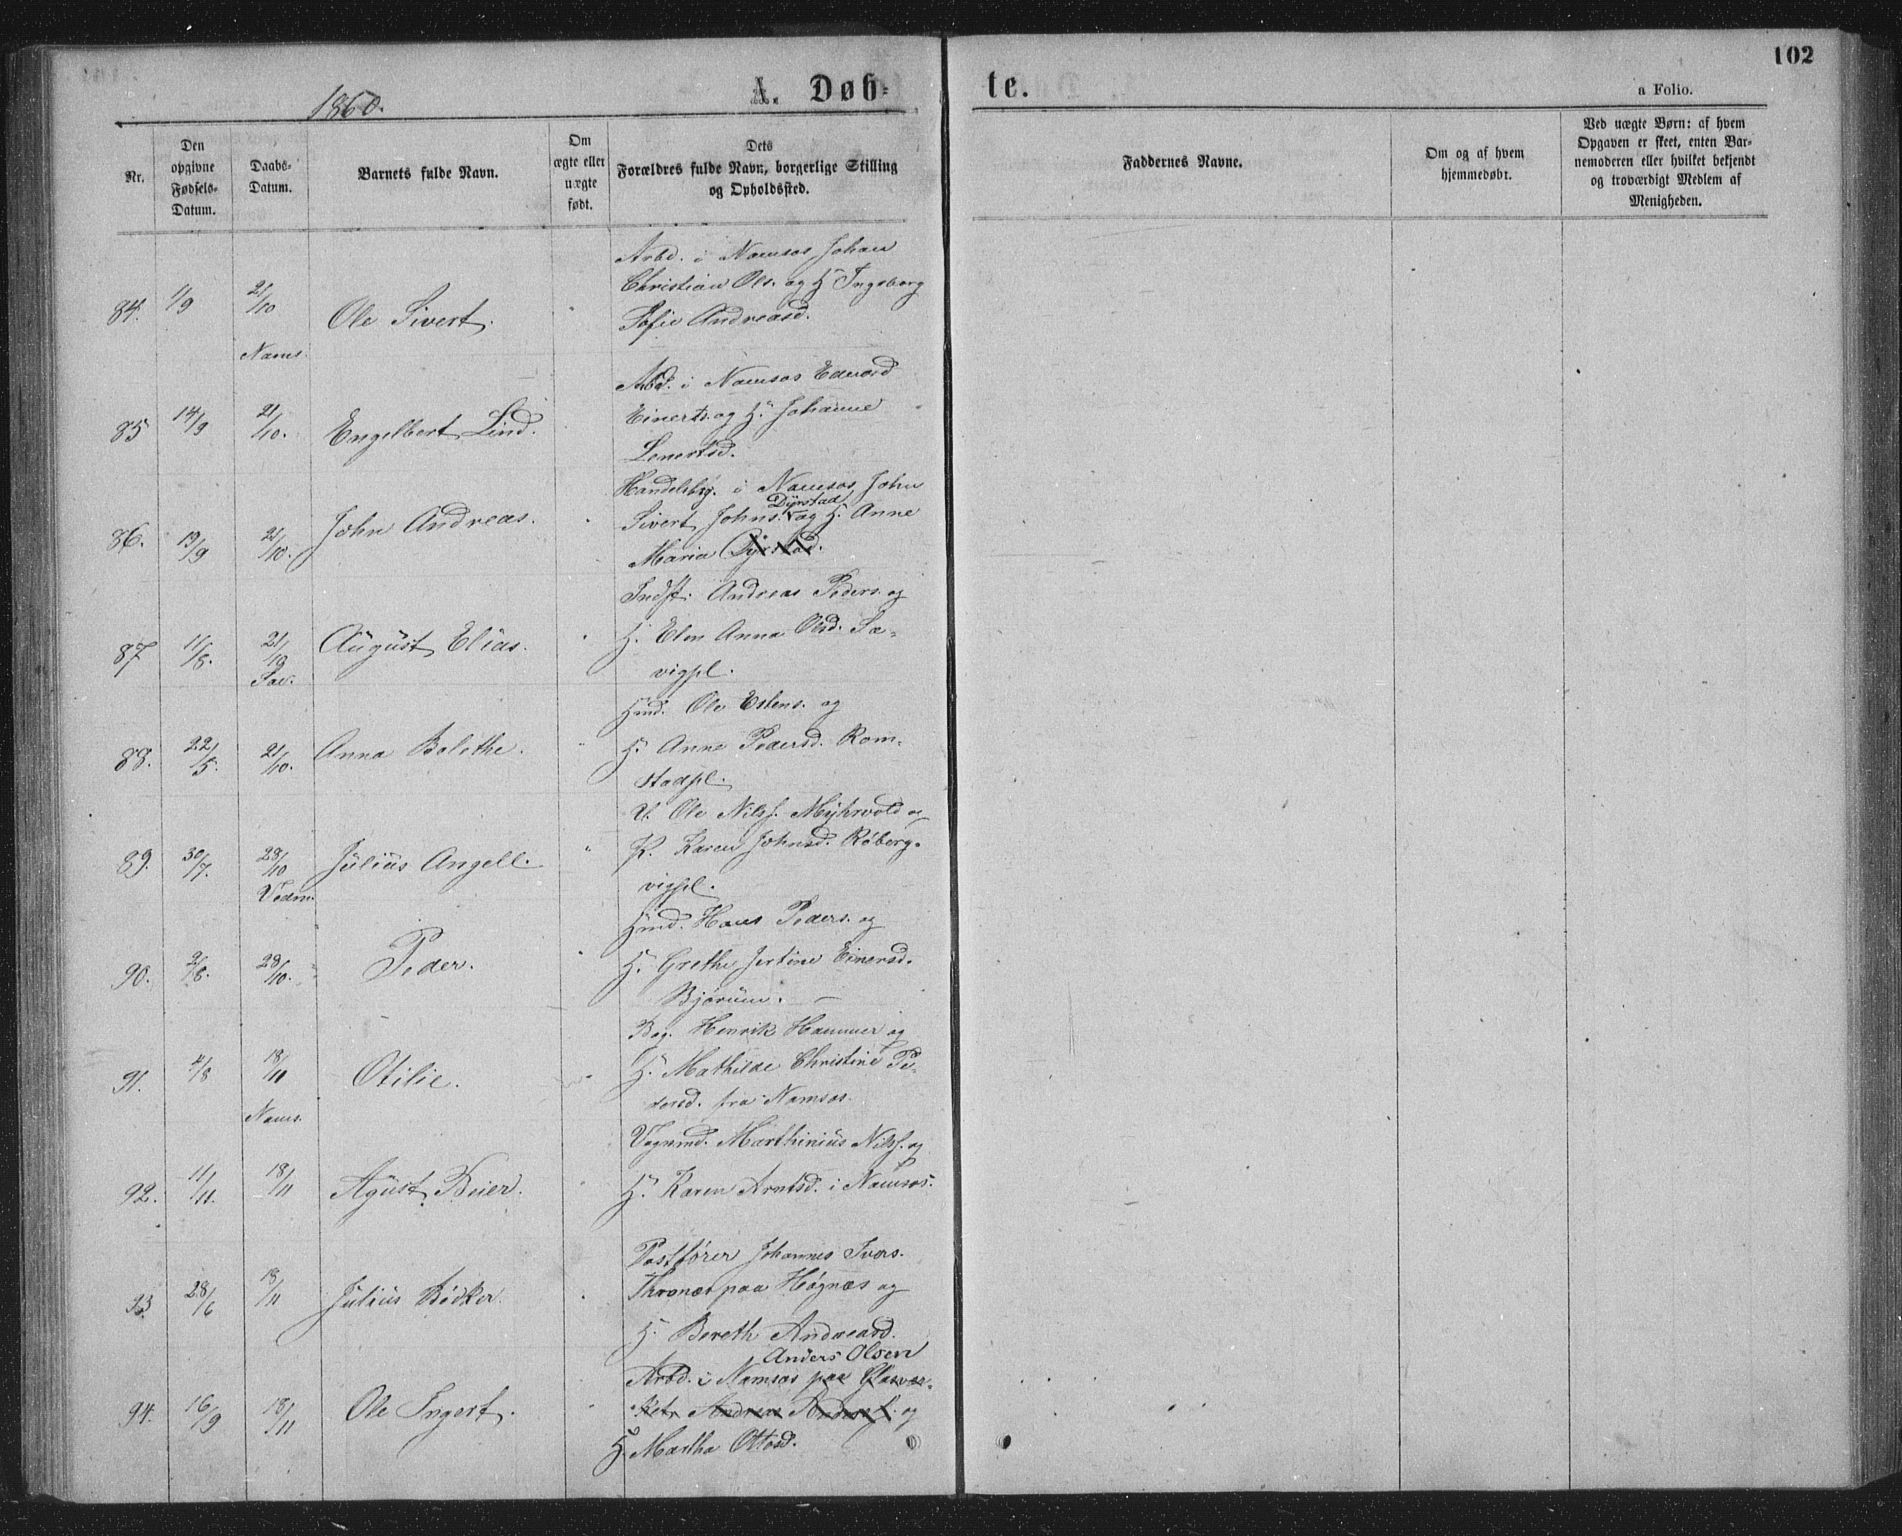 102
1860.
A. Døb-
te.
a Folio.
Nr.
Den
opgivne
Fødsels-
Datum.
Daabs-
Datum.
Barnets fulde Navn.
Om
ægte eller
uægte
født.
Dets
Forældres fulde Navn, borgerlige Stilling
og Opholdssted.
Faddernes Navne.
Om og af hvem
hjemmedøbt.
Ved uægte Børn: af hvem
Opgaven er skeet, enten Bar-
nemoderen eller hvilket bekjendt
og troværdigt Medlem af
Menigheden.
84. 1/9 21/10 Ole Sivert.
Nams.
Arbd. i Namsos Johan
Christian Ols. og H. Ingeborg
Sofie Andreasd.
85 14/9 21/10. Engelbert Lind.
Arbd. i Namsos Edvard
Einerts. og H. Johanne
Lenertsd.
86. 19/9 21/10. John Andreas.
Handelsbg. i Namsos John
Dyrstad
Sivert Johns. og H. Anne
Maria Dyrstad.
87 11/8. 21/10 August Elias.
Sæv.
Indst. Andreas Peders. og
H. Elen Anna Olsd. Sæ-
vigpl.
88. 22/5. 21/10. Anna Bolethe.
Hmd. Ole Estens. og
H. Anne Pedersd. Rom-
stadpl.
89. 30/7. 28/10 Julius Angell.
Vedm.
U. Ole Nilss. Myhrvold og
P. Karen Johnsd. Røberg-
vigpl.
90. 2/8. 28/10. Peder.
Hmd. Hans Peders. og
H. Grethe Jertine Einersd.
Bjørum.
91. 4/8 18/11 Otilie.
Nams.
Bag. Henrik Hammer og
H. Mathilde Christine Pe-
dersd. fra Namsos.
92. 11/11. 18/11 Agust Beier.
Vognmd. Marthinius Nilss. og
H. Karen Arntsd. i Namsos.
93 28/6 18/11 Julius Bødker.
Postfører Johannes Ivers.
Thronæs paa Høgnæs og
H. Bereth Andreasd.
94. 16/9 18/11 Ole Ingert.
Anders Olsen
Arbd. i Namsos paa Glasvær-
ket Andreas og
H. Martha Ottosd.